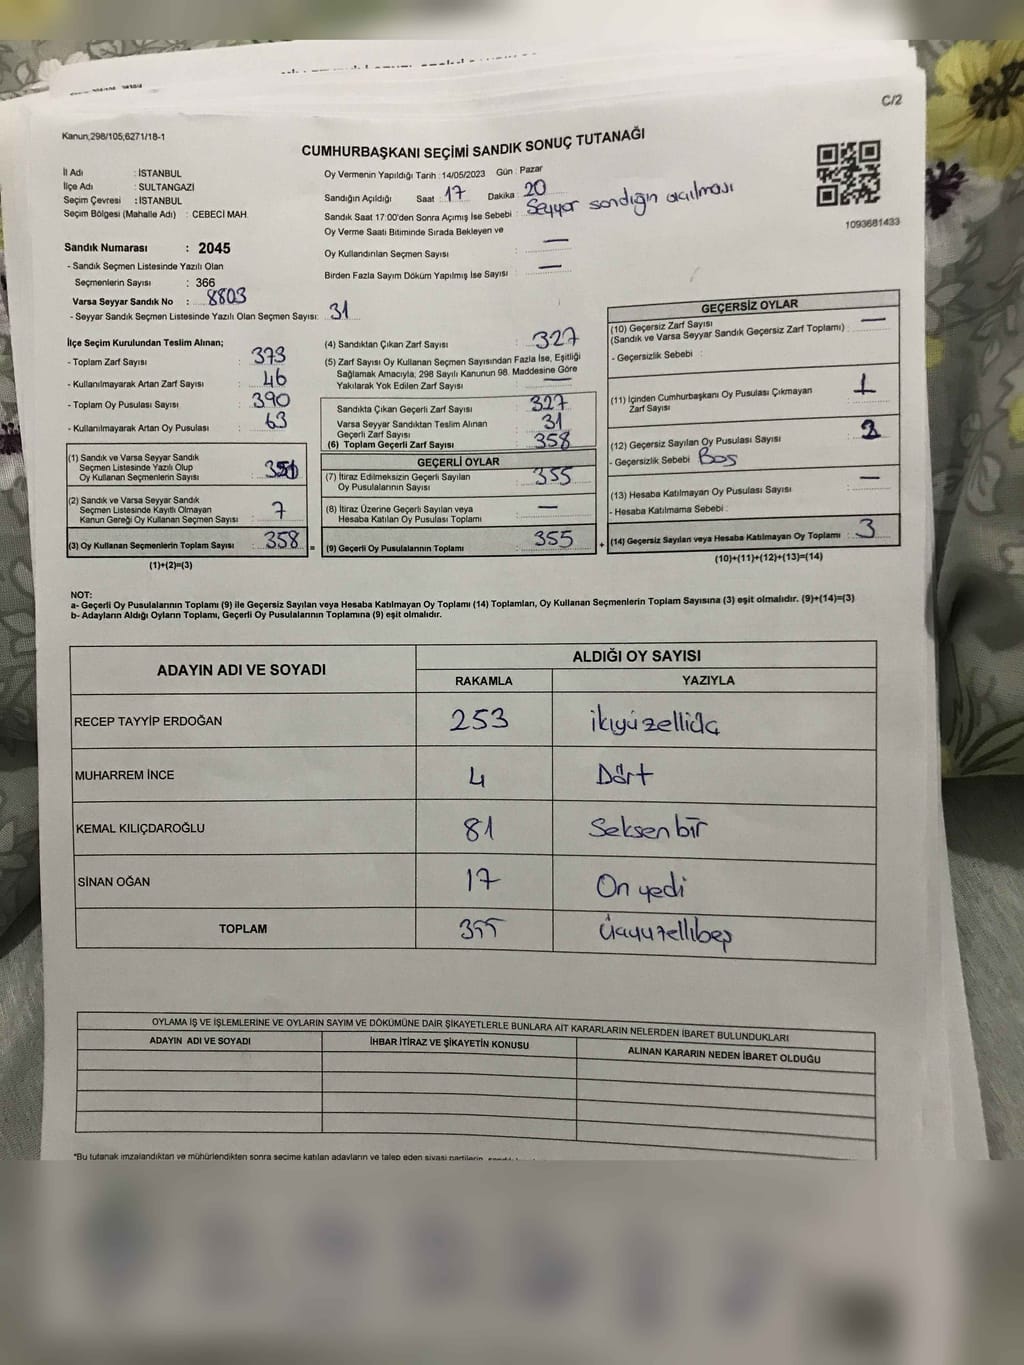 C/2
Kanun;298/105;6271/18-1
CUMHURBAŞKANI SEÇİMİ SANDIK SONUÇ TUTANAĞI
İl Adı : İSTANBUL
İlçe Adı : SULTANGAZİ
Seçim Çevresi : İSTANBUL
Seçim Bölgesi (Mahalle Adı) : CEBECİ MAH.
Oy Vermenin Yapıldığı Tarih : 14/05/2023 Gün : Pazar
Sandığın Açıldığı Saat : 17 Dakika : 20
Sandık Saat 17:00'den Sonra Açımış İse Sebebi : Seyyar sandığın açılması
1093681433
Sandık Numarası : 2045
- Sandık Seçmen Listesinde Yazılı Olan
Seçmenlerin Sayısı : 366
Varsa Seyyar Sandık No : 8803
- Seyyar Sandık Seçmen Listesinde Yazılı Olan Seçmen Sayısı: 31
Oy Verme Saati Bitiminde Sırada Bekleyen ve
Oy Kullandırılan Seçmen Sayısı : —
Birden Fazla Sayım Döküm Yapılmış İse Sayısı : —
İlçe Seçim Kurulundan Teslim Alınan;
- Toplam Zarf Sayısı : 373
- Kullanılmayarak Artan Zarf Sayısı : 46
- Toplam Oy Pusulası Sayısı : 390
- Kullanılmayarak Artan Oy Pusulası : 63
(1) Sandık ve Varsa Seyyar Sandık
Seçmen Listesinde Yazılı Olup
Oy Kullanan Seçmenlerin Sayısı : 351
(2) Sandık ve Varsa Seyyar Sandık
Seçmen Listesinde Kayıtlı Olmayan
Kanun Gereği Oy Kullanan Seçmen Sayısı : 7
(3) Oy Kullanan Seçmenlerin Toplam Sayısı : 358
(1)+(2)=(3)
(4) Sandıktan Çıkan Zarf Sayısı : 327
(5) Zarf Sayısı Oy Kullanan Seçmen Sayısından Fazla İse, Eşitliği
Sağlamak Amacıyla; 298 Sayılı Kanunun 98. Maddesine Göre
Yakılarak Yok Edilen Zarf Sayısı : —
Sandıkta Çıkan Geçerli Zarf Sayısı : 327
Varsa Seyyar Sandıktan Teslim Alınan
Geçerli Zarf Sayısı : 31
(6) Toplam Geçerli Zarf Sayısı : 358
GEÇERLİ OYLAR
(7) İtiraz Edilmeksizin Geçerli Sayılan
Oy Pusulalarının Sayısı : 355
(8) İtiraz Üzerine Geçerli Sayılan veya
Hesaba Katılan Oy Pusulası Toplamı : —
= (9) Geçerli Oy Pusulalarının Toplamı : 355
GEÇERSİZ OYLAR
(10) Geçersiz Zarf Sayısı
(Sandık ve Varsa Seyyar Sandık Geçersiz Zarf Toplamı) : —
- Geçersizlik Sebebi :
(11) İçinden Cumhurbaşkanı Oy Pusulası Çıkmayan
Zarf Sayısı : 1
(12) Geçersiz Sayılan Oy Pusulası Sayısı : 2
- Geçersizlik Sebebi : Boş
(13) Hesaba Katılmayan Oy Pusulası Sayısı : —
- Hesaba Katılmama Sebebi :
+ (14) Geçersiz Sayılan veya Hesaba Katılmayan Oy Toplamı : 3
(10)+(11)+(12)+(13)=(14)
NOT:
a- Geçerli Oy Pusulalarının Toplamı (9) ile Geçersiz Sayılan veya Hesaba Katılmayan Oy Toplamı (14) Toplamları, Oy Kullanan Seçmenlerin Toplam Sayısına (3) eşit olmalıdır. (9)+(14)=(3)
b- Adayların Aldığı Oyların Toplamı, Geçerli Oy Pusulalarının Toplamına (9) eşit olmalıdır.
ADAYIN ADI VE SOYADI
ALDIĞI OY SAYISI
RAKAMLA YAZIYLA
RECEP TAYYİP ERDOĞAN 253 ikiyüzelliüç
MUHARREM İNCE 4 Dört
KEMAL KILIÇDAROĞLU 81 Seksen bir
SİNAN OĞAN 17 On yedi
TOPLAM 355 Üçyüzellibeş
OYLAMA İŞ VE İŞLEMLERİNE VE OYLARIN SAYIM VE DÖKÜMÜNE DAİR ŞİKAYETLERLE BUNLARA AİT KARARLARIN NELERDEN İBARET BULUNDUKLARI
ADAYIN ADI VE SOYADI İHBAR İTİRAZ VE ŞİKAYETİN KONUSU ALINAN KARARIN NEDEN İBARET OLDUĞU
*Bu tutanak imzalandıktan ve mühürlendikten sonra seçime katılan adayların ve talep eden siyasi partilerin